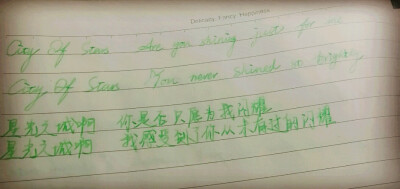 City Of Stars Are you shining just for me
City Of Stars You never shined so brightly
星光之城啊 你是否只愿为我闪耀
星光之城啊 我感受到了你从未有过的闪耀